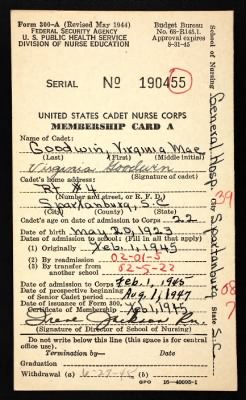 Form 300-A (Revised May 1944)
FEDERAL SECURITY AGENCY
U. S. PUBLIC HEALTH SERVICE
DIVISION OF NURSE EDUCATION
Budget Bureau
No. 68-R145.1.
Approval expires
8-31-45
SERIAL No 190455
UNITED STATES CADET NURSE CORPS
MEMBERSHIP CARD A
Name of Cadet:
Goodwin, Virginia Mae
(Last) (First) (Middle initial)
Virginia Goodwin
(Signature of cadet)
Cadet's home address:
Rt #4
(Number and street, or R. F. D.)
Spartanburg, S.C.
(City) (County) (State)
Cadet's age on date of admission to Corps 22
Date of birth may 20, 1923
Dates of admission to school: (Fill in all that apply)
(1) Originally Feb. 1, 1945
(2) By readmission 02-01-5
(3) By transfer from another school 02-5-22
Date of admission to Corps Feb. 1, 1945
Date of prospective beginning of Senior Cadet period Aug. 1, 1947
Date of issuance of Form 300, Certificate of Membership Feb 1, 1945
Irene Jackson R.n.
(Signature of Director of School of Nursing)
Do not write below this line (this space for central office use).
Termination by— Date
Graduation
Withdrawal (a) (b)
GPO 16-40098-1
School of Nursing General Hosp
City Spartanburg
State S.C.
29
68
7